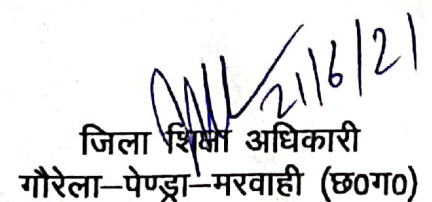 21/6/21
जिला शिक्षा अधिकारी
गौरेला–पेण्ड्रा–मरवाही (छ०ग०)